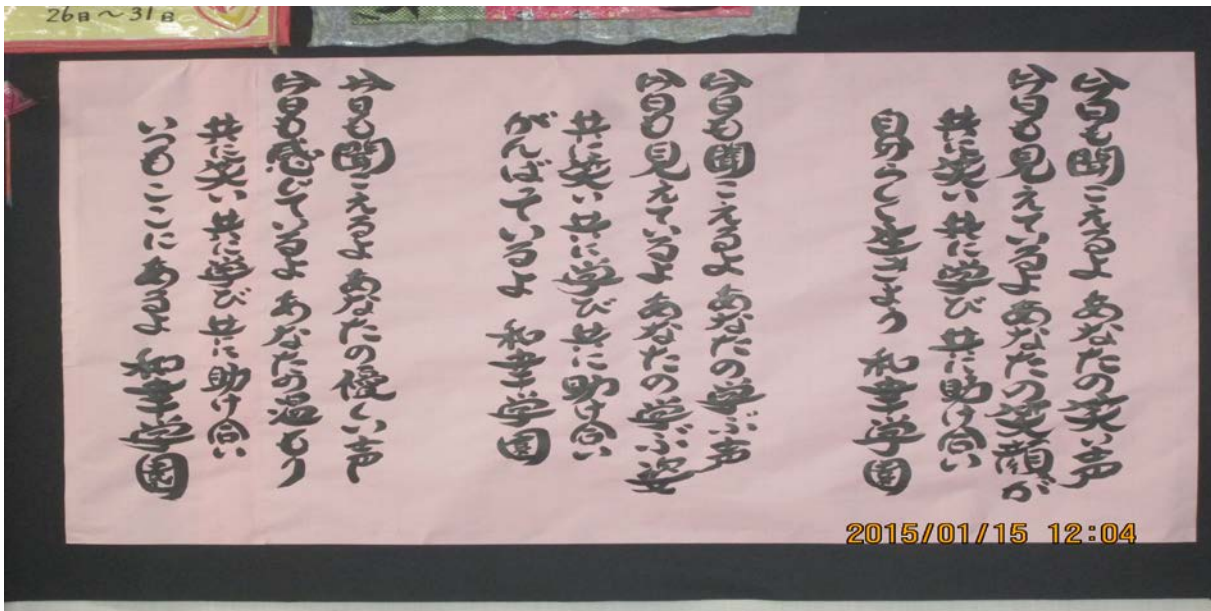 26日～31日
今日も聞こえるよ あなたの笑い声
今日も見えているよ あなたの笑顔が
共に笑い 共に学び 共に助け合い
自分らしく生きよう 和幸学園
今日も聞こえるよ あなたの学ぶ声
今日も見えているよ あなたの学ぶ姿
共に笑い 共に学び 共に助け合い
がんばっているよ 和幸学園
今日も聞こえるよ あなたの優しい声
今日も感じているよ あなたの温もり
共に笑い 共に学び 共に助け合い
いつもここにあるよ 和幸学園
2015/01/15 12:04